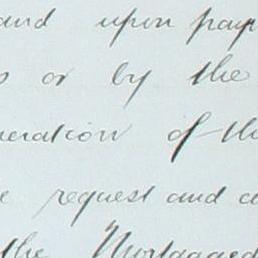 and upon pay
s or by the
neration of th
e request and a
the Mortgaged